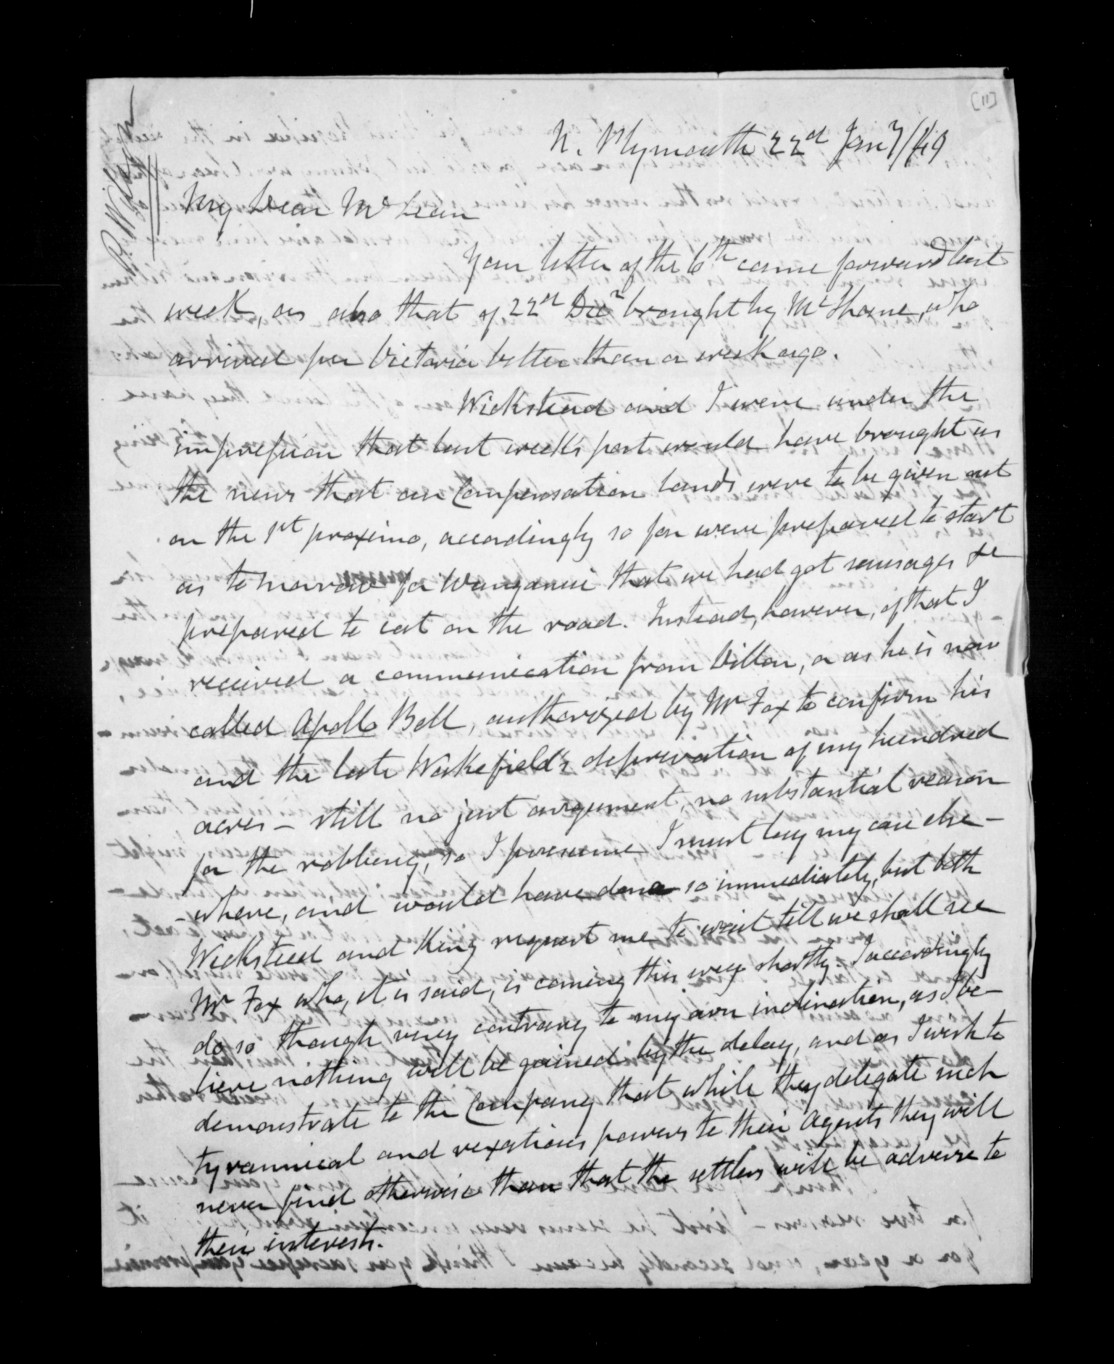 [11]
N. Plymouth 22nd Jany/49
My Dear McLean
Your letter of the 6th came forward last
week, as also that of 22nd Decr brought by Mr Thorne, who
arrived per Victoria better than a week ago.
Wickstead and I were under the
impression that last week's post would have brought us
the news that our Compensation lands were to be given out
on the 1st proximo, accordingly so far were prepared to start
as tomorrow for Wanganui that we had got sausages &c
prepared to eat on the road. Instead, however, of that I
received a communication from Dillon, or as he is now
called Apollo Bell, authorized by Mr Fox to confirm his
and the late Wakefield's deprivation of my hundred
acres – still no just argument, no substantial reason
for the robbery, so I presume I must lay my case else-
-where, and would have done so immediately, but both
Wicksteed and King request me to wait till we shall see
Mr Fox who, it is said, is coming this way shortly. I accordingly
do so though very contrary to my own inclination, as I be-
lieve nothing will be gained by the delay, and as I wish to
demonstrate to the Company that while they delegate such
tyrannical and vexatious powers to their Agents they will
never find otherwise than that the settlers will be adverse to
their interests.